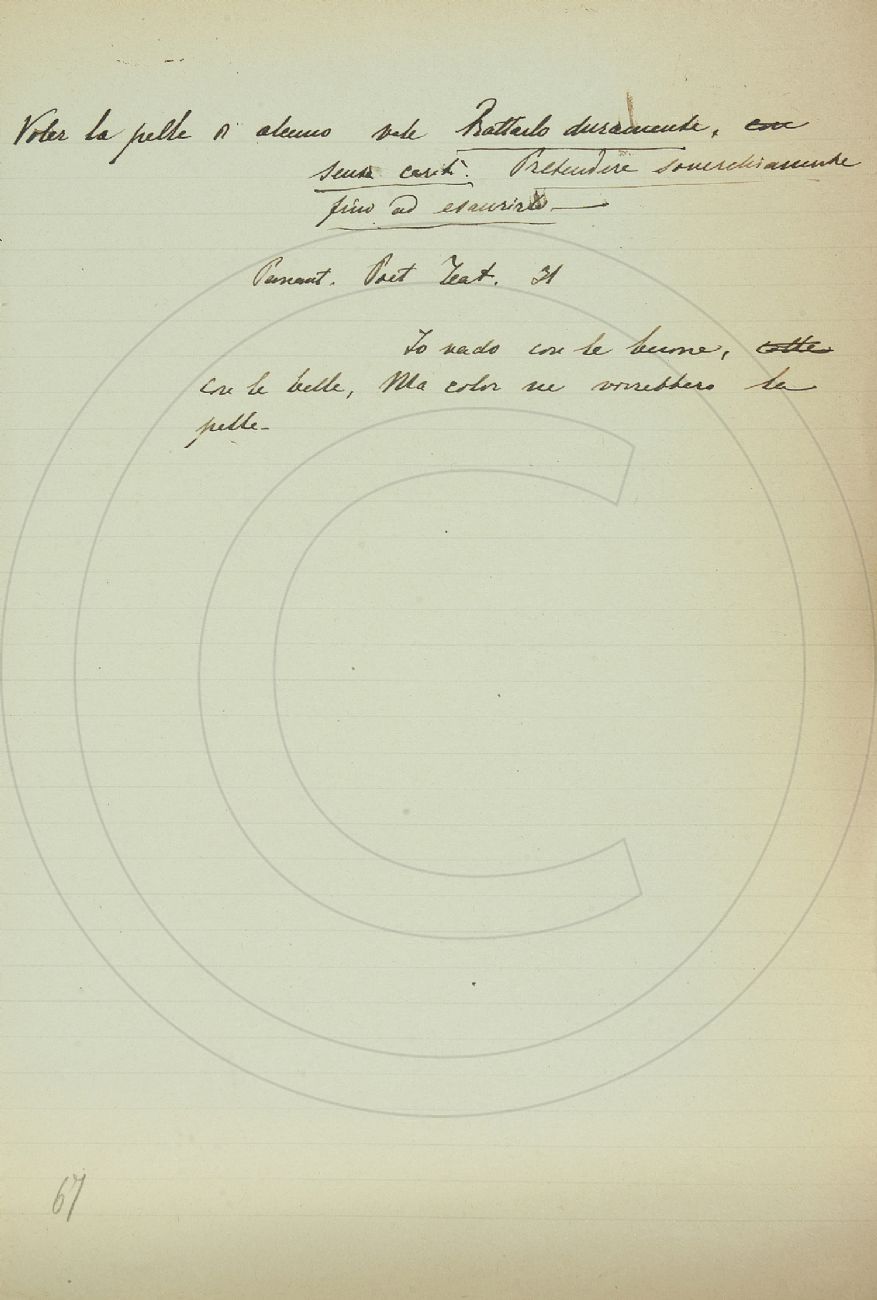 Voler la pelle d' alcuno vale Trattarlo duramente, con
senza carità. Pretendere soverchiamente
fino ad esaurirlo —
Panant. Poet Teat. 31
Io vado con le buone, colle
con le belle, Ma color ne vorrebbero la
pelle —
67